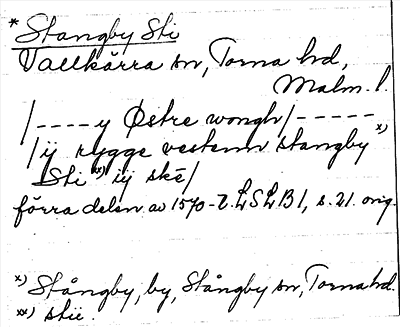 * Stangby Sti
Vallkärra sn, Torna hd,
Malm. l.
/----y Østre wongh/-----
/ij rygge vestenn stangby x)
Sti xx) ij skē/
förra delen av 1570-t. LSLB1, s. 21. orig.
x) Stångby, by, Stångby sn, Torna hd.
xx) stii.